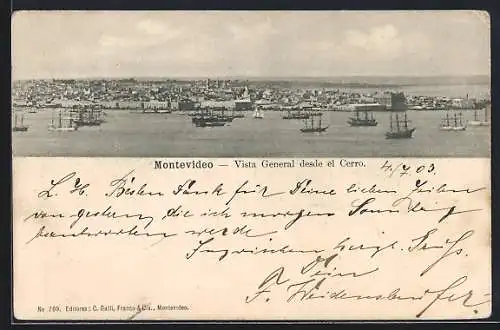 Montevideo — Vista General desde el Cerro.
4/7.03.
L. H. Besten Dank für Deine lieben Zeilen
von gestern, die ich morgen Sonntag
beantworten werde
Inzwischen herzl. Gruß.
Dein
F. Weidensdorfer
No. 709. Editores: C. Galli, Franco & Cia., Montevideo.